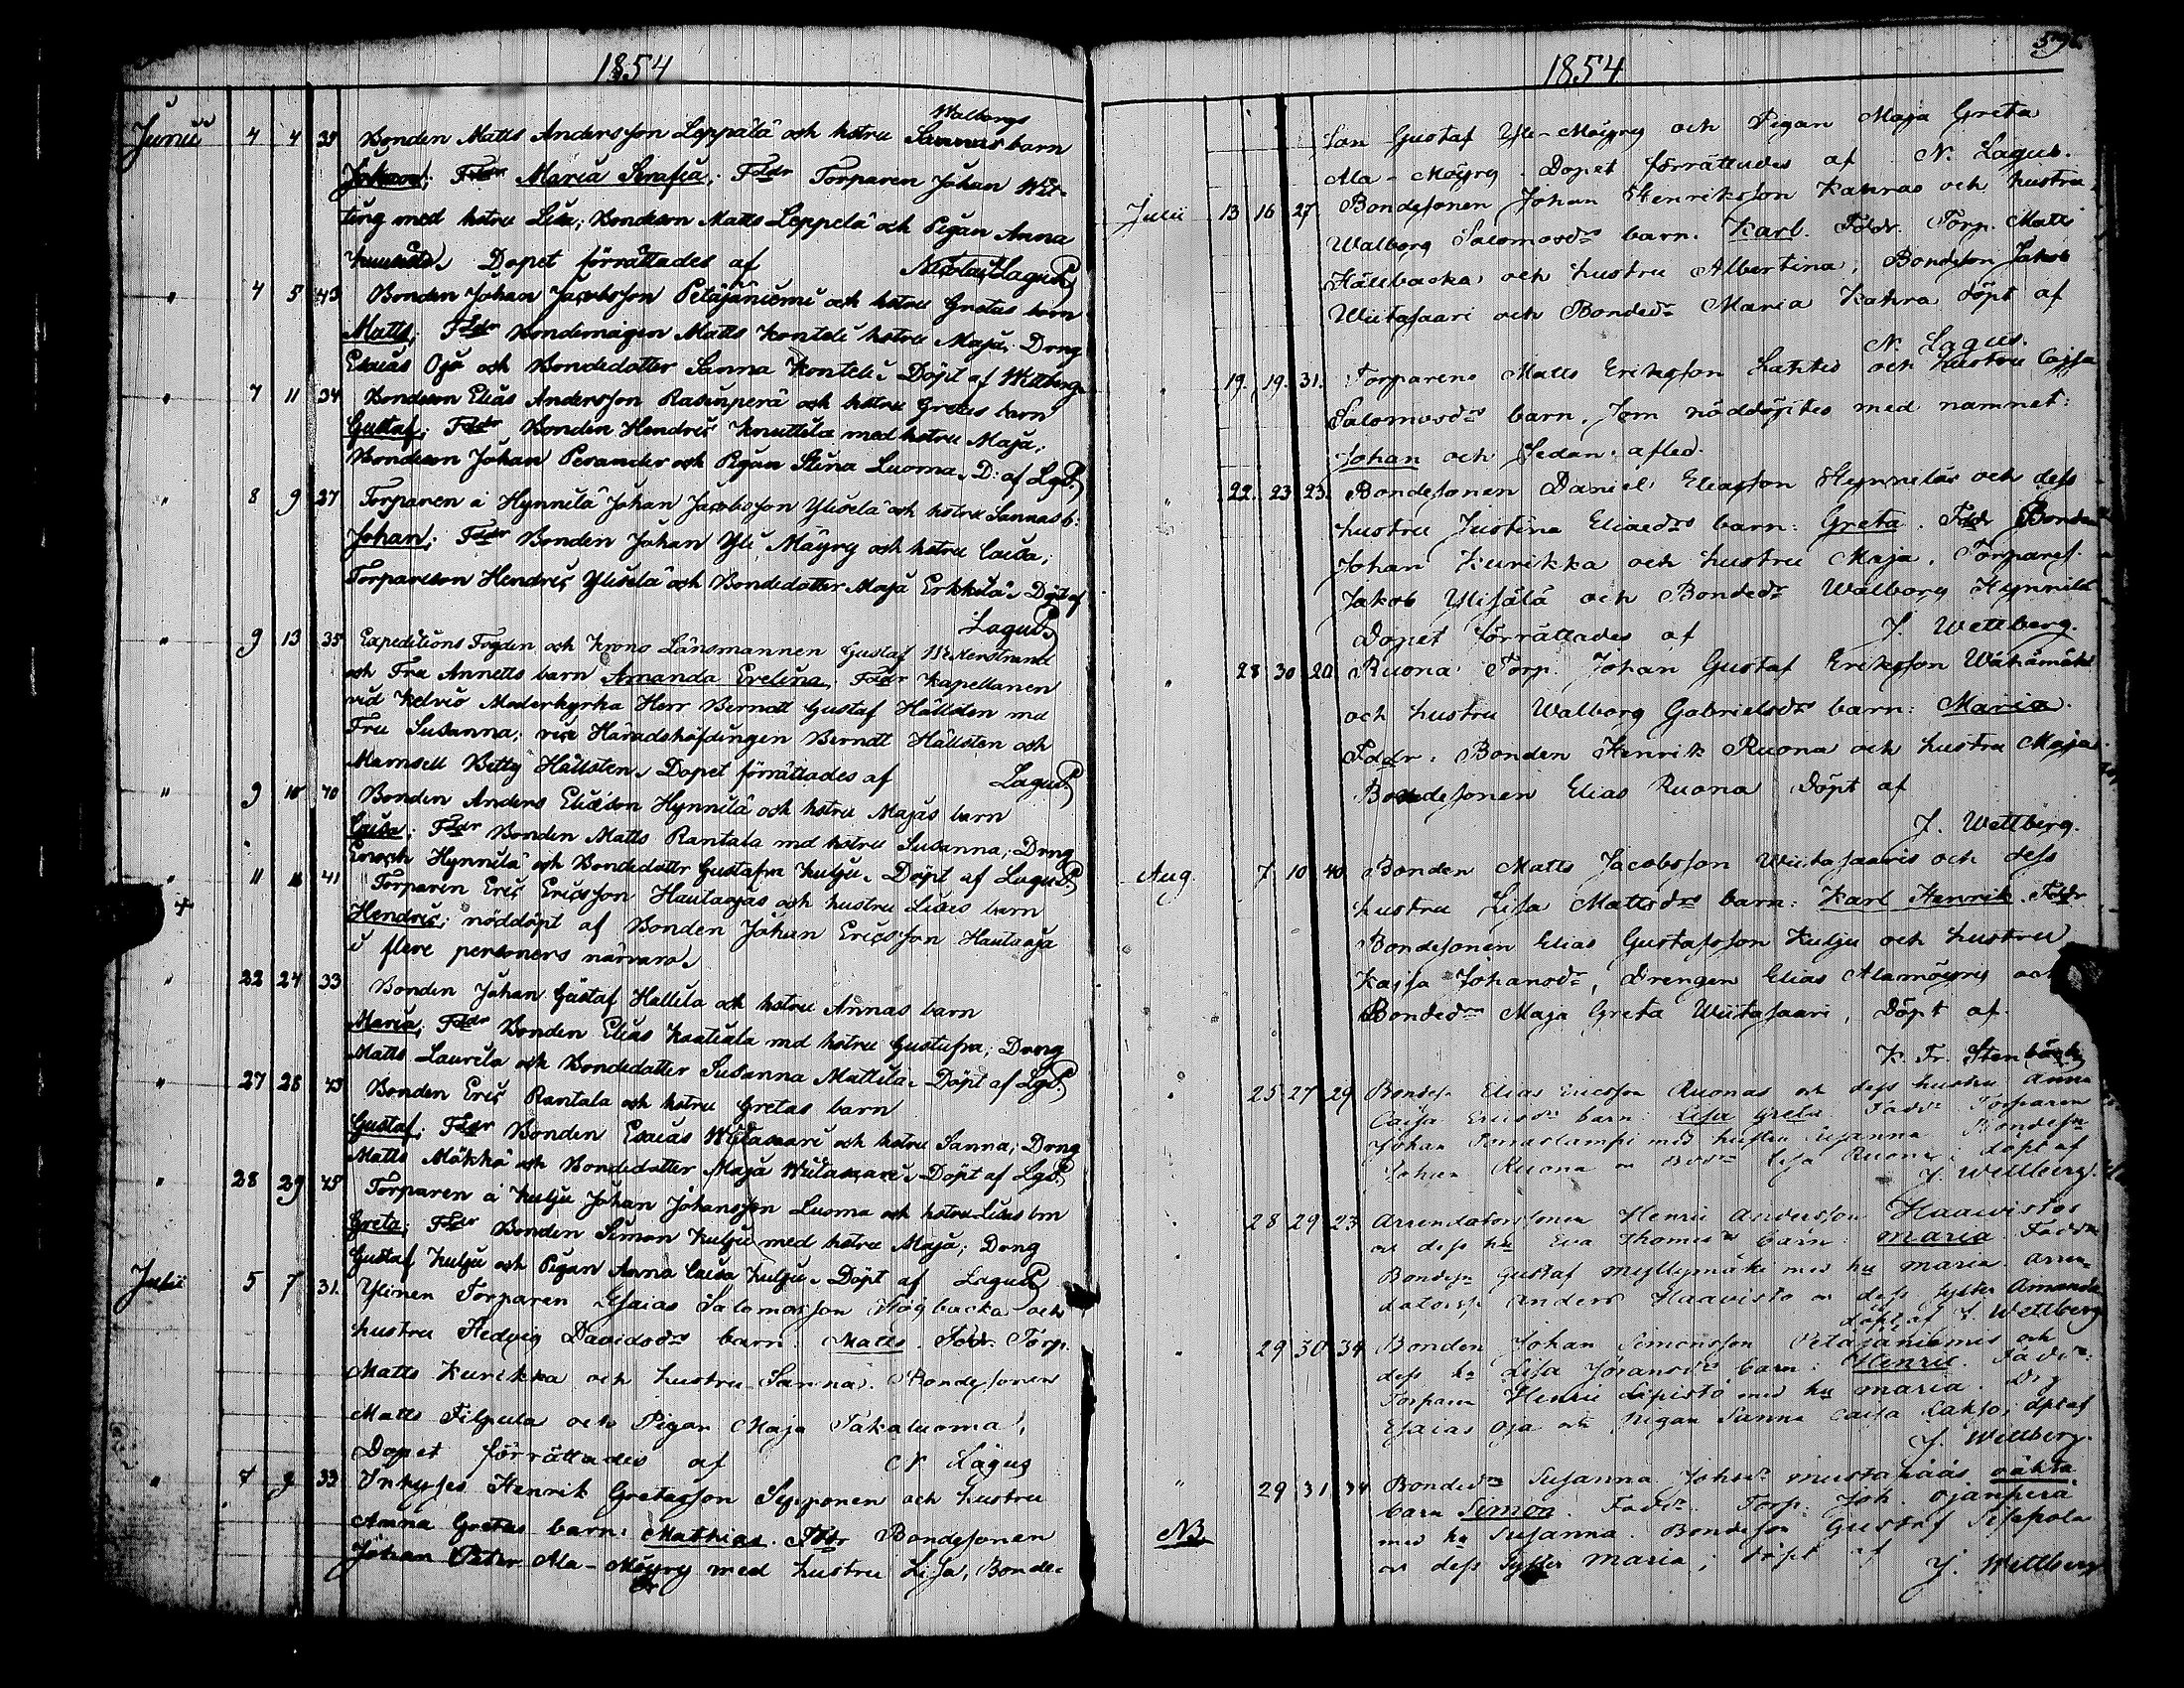 1854
Junii 4 4 39 Bonden Matts Andersson Leppälä och hstru Walborgs barn
Maria Serafia; Fddr Torparen Johan
med hstru Lisa; Bondeson Matts Leppelä och Pigan Anna
Dopet förrättades af Nicolai Lagus
" 4 5 43 Bonden Johan Jacobsson Petäjäniemi och hstru Gretas barn
Matts; Fddr Bondemågen Matts Konteli hstru Maja; Drng
Esaias Oja och Bondedotter Sanna Konteli. Döpt af Wettberg
" 7 11 34 Bondeson Elias Andersson Rasinperä och hstru Gretas barn
Gustaf; Fddr Bonden Hendric Knuttila med hstru Maja;
Bondeson Johan Perander och Pigan Stina Luoma. D: af Lgs
" 8 9 27 Torparen å Hynnilä Johan Jacobsson Yliselä och hstru Sannas b:
Johan; Fddr Bonden Johan Yli Mäyry och hstru Caisa;
Torpareson Hendric Yliselä och Bondedotter Maja Erkkilä. Döpt af
Lagus
" 9 13 35 Expeditions Fogden och Krono Länsmannen Gustaf
och Fru Annetts barn Amanda Evelina. Fddr Kapellanen
vid Kelvio Moderkyrka Herr Berndt Gustaf Hällsten med
Fru Susanna; vice Häradshöfdingen Berndt Hällsten och
Mamsell Betty Hällsten. Dopet förrättades af Lagus
" 9 10 40 Bonden Anders Eliasson Hynnilä och hstru Majas barn
Caisa; Fddr Bonden Matts Rantala med hstru Susanna; Drng
Enoch Hynnilä och Bondedotter Gustafva Kulju. Döpt af Lagus
" 11 41 Torparen Eric Ericsson Hautaojas och hustru Lisas barn
+ Hendric; nöddöpt af Bonden Johan Ericsson Hautaoja
i flere personers närvaro.
" 22 24 33 Bonden Johan Gustaf Hallila och hstru Annas barn
Maria; Fddr Bonden Elias Kaatiala med hstru Gustafva; Drng
Matts Laurila och Bondedotter Susanna Mattila. Döpt af Lgs
" 27 28 43 Bonden Eric Rantala och hstru Gretas barn
Gustaf; Fddr Bonden Esaias Wiitasaari och hstru Sanna; Drng
Matts Mäkkö och Bondedotter Maja Wiitasaari. Döpt af Lgs
" 28 29 45 Torparen å Kulju Johan Johansson Luoma och hstru Lisas brn
Greta; Fddr Bonden Simon Kulju med hstru Maja; Drng
Gustaf Kulju och Pigan Anna Caisa Kulju. Döpt af Lagus
Julii 5 7 31. Ylinen Torparen Esaias Salomonsson Högbacka och
hustru Hedvig Davidsdr barn: Matts. Fddr. Torp.
Matts Kurikka och hustru Sanna. Bondesonen
Matts Filpula och Pigan Maja Takaluoma,
Dopet förrättades af N Lagus
" 7 9 33 Inhyses Henrik Gretasson Sepponen och hustru
Anna Gretas barn: Mathias. Fddr Bondesonen
Johan Peter Ala-Mäyry med hustru Lisa, Bonde-
1854
son Gustaf Yli-Mäyry och Pigan Maja Greta
Ala-Mäyry. Dopet förrättades af N. Lagus.
Julii 13 16 27 Bondesonen Johan Henriksson Kahras och hustru
Walborg Salomosdr barn. Karl. Fddr. Torp. Matts
Hällbacka och hustru Albertina, Bondeson Jakob
Wiitasaari och Bondedr Maria Kahra döpt af
N. Lagus.
" 19. 19. 31. Torparens Matts Eriksson Lahtis och hustru Cajsa
Salomosdr barn, som nöddöptes med namnet:
Johan och sedan afled.
" 22. 23 23. Bondesonen Daniel Eliasson Hynnilas och dess
hustru Justina Eliaedr barn: Greta. Fddr Bonden
Johan Kurikka och hustru Maja, Torpares.
Jakob Ylisälä och Bondedr Walborg Hynnilä
Dopet förrättades af J. Wettberg.
" 28 30 20 Ruona Torp. Johan Gustaf Eriksson Wähämäki
och hustru Walborg Gabrielsdr barn: Maria.
Fddr. Bonden Henrik Ruona och hustru Maja
Bondesonen Elias Ruona Döpt af
J. Wettberg.
Aug. 7 10 40 Bonden Matts Jacobsson Wiitasaaris och dess
hustru Lisa Mattsdr barn: Karl Henrik. Fddr
Bondesonen Elias Gustafsson Kulju och hustru
Kajsa Johansdr, Drengen Elias Alamäyry och
Bondedr Maja Greta Wiitasaari, Döpt af.
K. Fr. Stenbäck
" 25 27 29 Bondesn Elias Ericsson Ruonas och dess hustru Anna
Caisa Ericsdr barn: Lisa Greta Faddr Torparen
Johan med hustru Susanna Bondesn
Johan Ruona o Lisa Ruona. döpt af
J. Wettberg.
" 28 29 23 Arrendatorssonen Henric Andersson Haawistos
och dess hu Eva Thomasdr barn: Maria. Faddr
Bondesn Gustaf Myllymäki med hu Maria. arren-
datorss. Anders Haavisto o dess syster Amanda
döpt af J. Wettberg
" 29 30 34 Bonden Johan Simonsson Petäjäniemis och
dess hu Lisa Johansdr barn: Henric. Faddr:
Torparen Henric Lepistö med hu Maria. Drg
Esaias Oja och Pigan Sanna Caisa Lakso; dpt af
J. Wettberg.
" 29 31 34 Bondedr Susanna Johsdr Mustakääs oäkta
NB. barn Simon. Faddr. Torp. Joh. Ojanperä
med hu Susanna. Bondeson Gustaf Seppola
o dess syster Maria; döpt af J. Wettberg